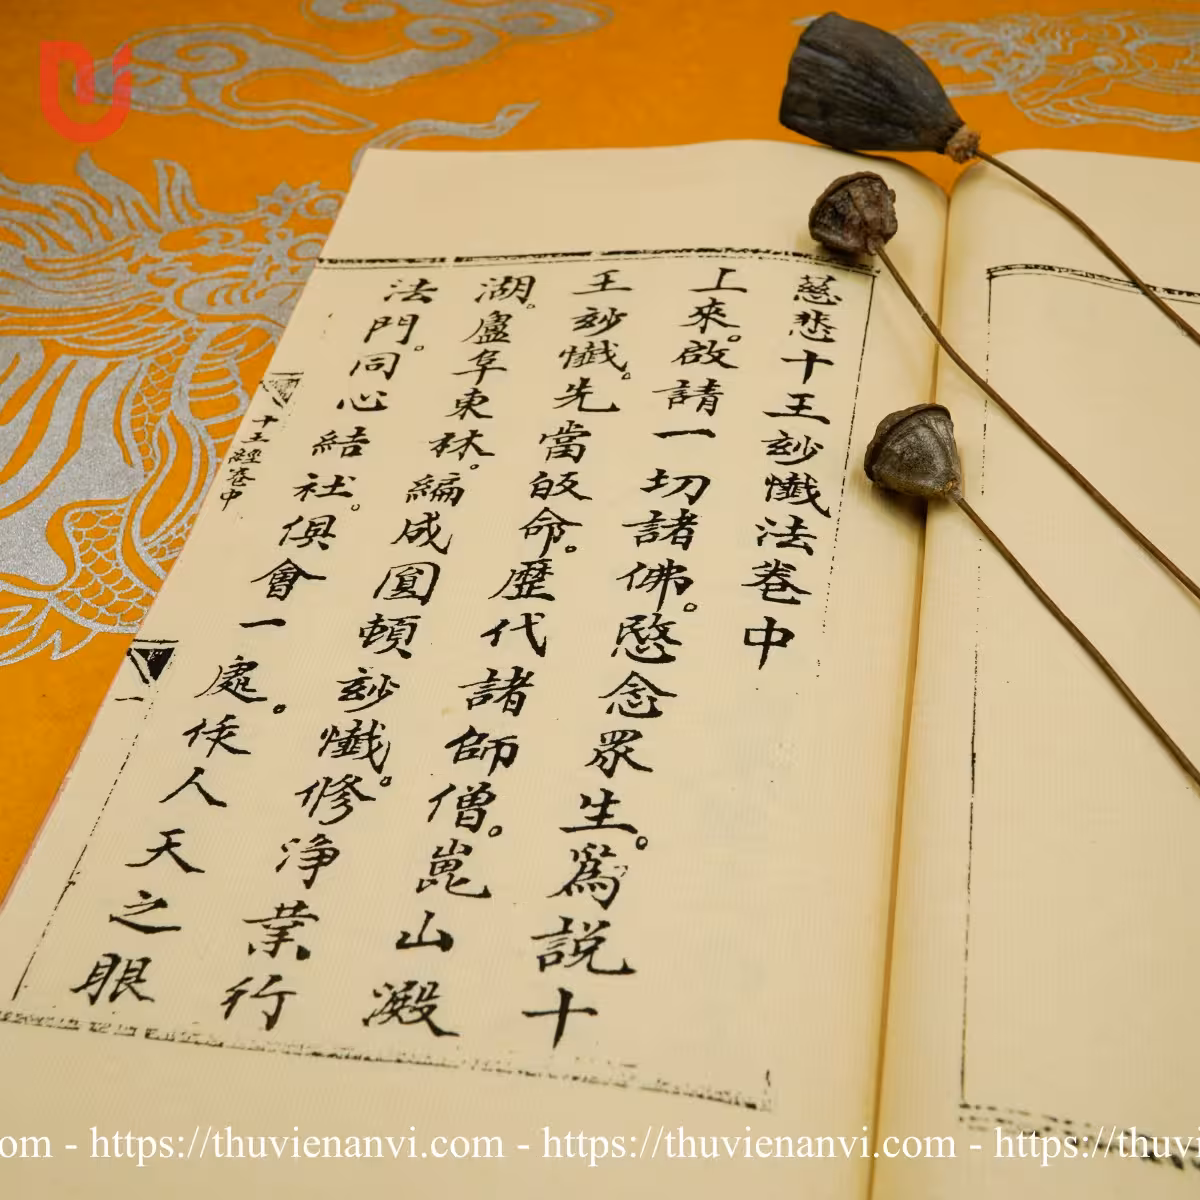 慈悲十王玅懺法卷中
上來。啟請一切諸佛。愍念眾生。爲説十
王玅懺。先當皈命。歷代諸師僧。崑山澱
湖。盧阜東林。編成圓頓玅懺。修淨業行
法門。同心結社。俱會一處。作人天之眼
十王經卷中
一
om - https://thuvienanvi.com - https://thuvienanvi.com - https://thuvi